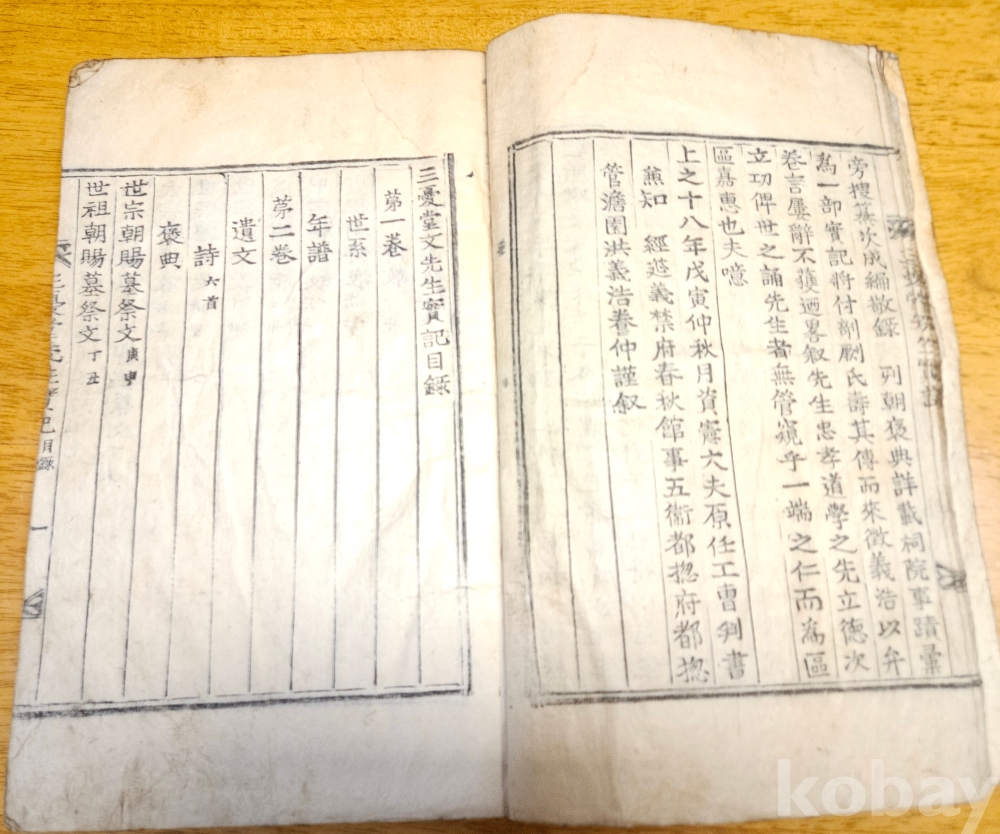 旁搜纂次成編敬錄 列朝褒典詳載祠院事蹟彙
為一部實記將付剞劂氏壽其傳而來徵義浩以弁
卷言屢辭不獲迺畧叙先生忠孝道學之先立德次
立功俾世之誦先生者無管窺乎一端之仁而為區
區嘉惠也夫噫
上之十八年戊寅仲秋月資憲大夫原任工曹判書
兼知 經莚義禁府春秋館事五衛都摠府都摠
管澹園洪義浩養仲謹叙
三憂堂文先生實記目錄
第一卷
世系
年譜
第二卷
遺文
詩 六首
褒典
世宗朝賜墓祭文 庚申
世祖朝賜墓祭文 丁丑
目錄
一
kobay